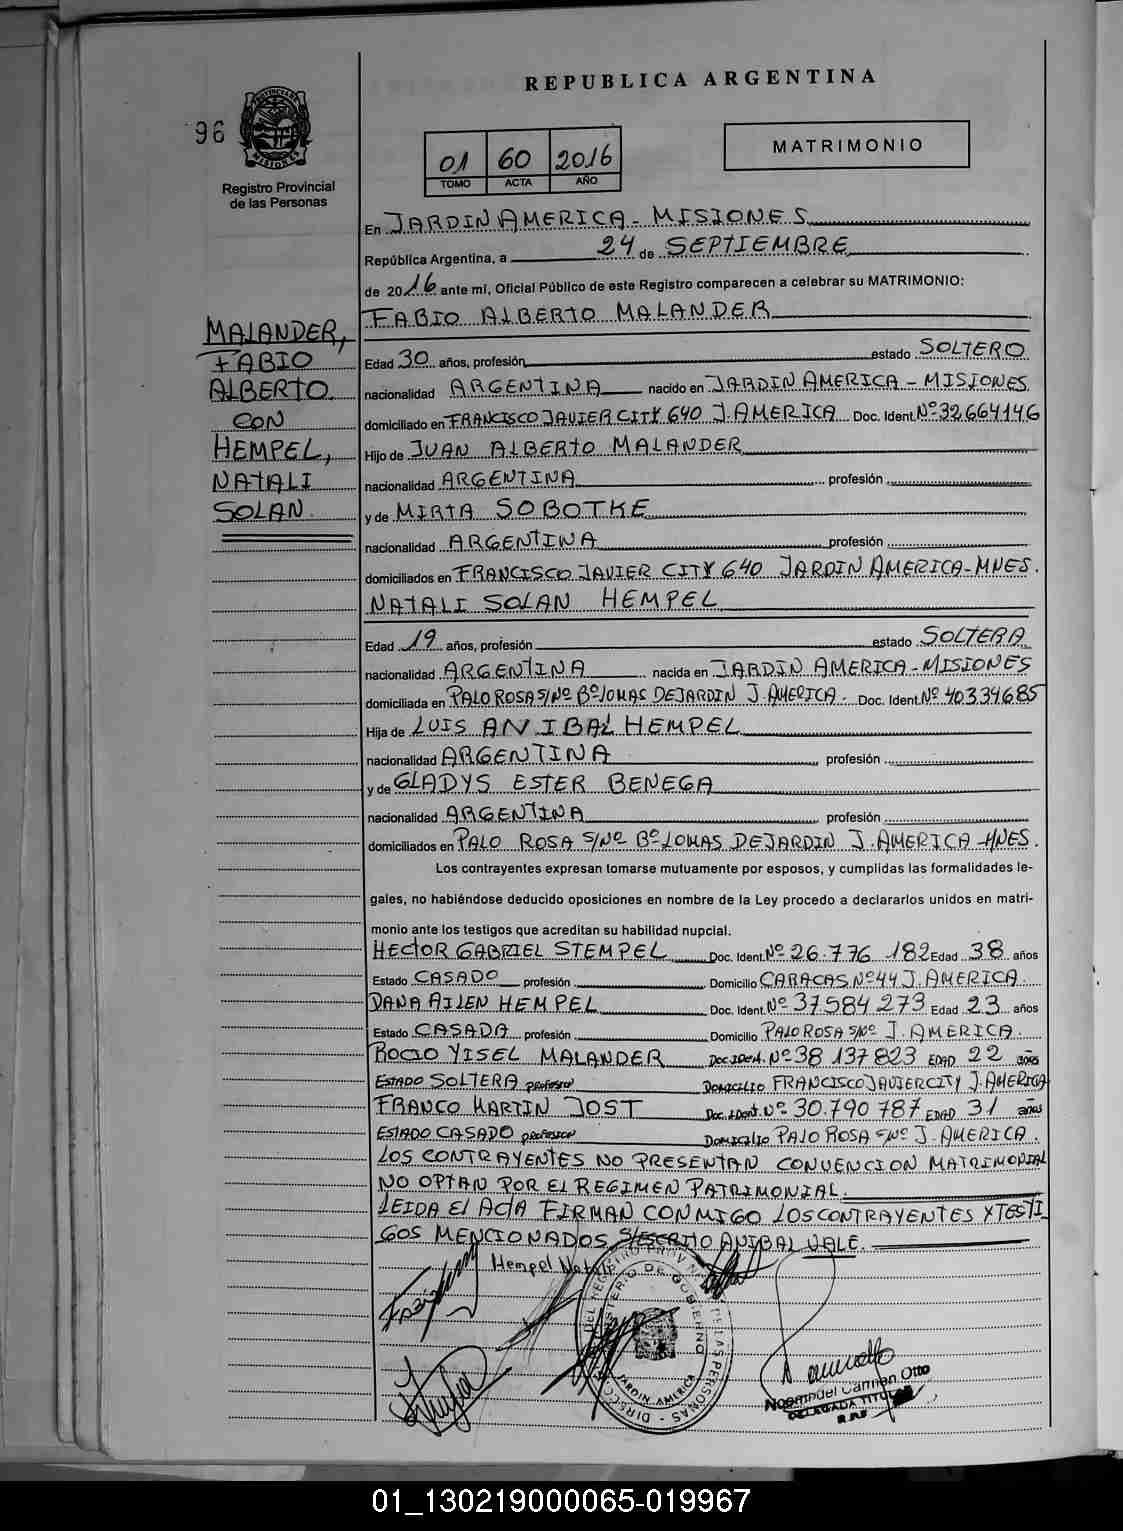 REPUBLICA ARGENTINA
96
PROVINCIA DE MISIONES
Registro Provincial
de las Personas
01 60 2016
TOMO ACTA AÑO
MATRIMONIO
En JARDIN AMERICA - MISIONES
República Argentina, a 24 de SEPTIEMBRE
de 2016 ante mí, Oficial Público de este Registro comparecen a celebrar su MATRIMONIO:
MALANDER,
FABIO
ALBERTO
CON
HEMPEL,
NATALI
SOLAN.
FABIO ALBERTO MALANDER
Edad 30 años, profesión estado SOLTERO
nacionalidad ARGENTINA nacido en JARDIN AMERICA - MISIONES
domiciliado en FRANCISCO JAVIER CITY 640 J. AMERICA Doc. Ident. Nº 32664146
Hijo de JUAN ALBERTO MALANDER
nacionalidad ARGENTINA profesión
y de MIRTA SOBOTKE
nacionalidad ARGENTINA profesión
domiciliados en FRANCISCO JAVIER CITY 640 JARDIN AMERICA - MNES.
NATALI SOLAN HEMPEL
Edad 19 años, profesión estado SOLTERA
nacionalidad ARGENTINA nacida en JARDIN AMERICA - MISIONES
domiciliada en PALO ROSA S/Nº Bº LOMAS DE JARDIN J. AMERICA. Doc. Ident. Nº 40334685
Hija de LUIS ANIBAL HEMPEL
nacionalidad ARGENTINA profesión
y de GLADYS ESTER BENEGA
nacionalidad ARGENTINA profesión
domiciliados en PALO ROSA S/Nº Bº LOMAS DE JARDIN J. AMERICA - MNES.
Los contrayentes expresan tomarse mutuamente por esposos, y cumplidas las formalidades le-
gales, no habiéndose deducido oposiciones en nombre de la Ley procedo a declararlos unidos en matri-
monio ante los testigos que acreditan su habilidad nupcial.
HECTOR GABRIEL STEMPEL Doc. Ident. Nº 26.776 182 Edad 38 años
Estado CASADO profesión Domicilio CARACAS Nº 44 J. AMERICA.
DANA AILEN HEMPEL Doc. Ident. Nº 37584 273 Edad 23 años
Estado CASADA profesión Domicilio PALO ROSA S/Nº J. AMERICA.
ROCIO YISEL MALANDER DOC. IDENT. Nº 38 137 823 EDAD 22 años
ESTADO SOLTERA profesion DOMICILIO FRANCISCO JAVIER CITY J. AMERICA
FRANCO MARTIN JOST Doc. Ident. Nº 30.790 787 EDAD 31 años
ESTADO CASADO profesion DOMICILIO PALO ROSA S/Nº J. AMERICA.
LOS CONTRAYENTES NO PRESENTAN CONVENCION MATRIMONIAL
NO OPTAN POR EL REGIMEN PATRIMONIAL.
LEIDA EL ACTA FIRMAN CONMIGO LOS CONTRAYENTES Y TESTI_
GOS MENCIONADOS S/ESCRITO ANIBAL VALE.
Hempel Natali
MINISTERIO DE GOBIERNO
JARDIN AMERICA
Carmen Otto
DELEGADA TITULAR
01_130219000065-019967